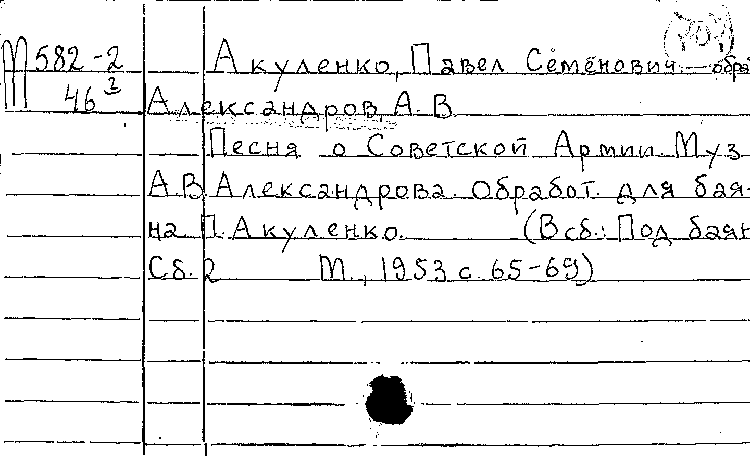 М 582-2
46³
Акуленко, Павел Семёнович — обра
Александров, А.В.
Песня о Советской Армии. Муз
А.В. Александрова. Обработ. для бая-
на П. Акуленко. (В сб.: Под баян
Сб. 2 М., 1953 с. 65-69)